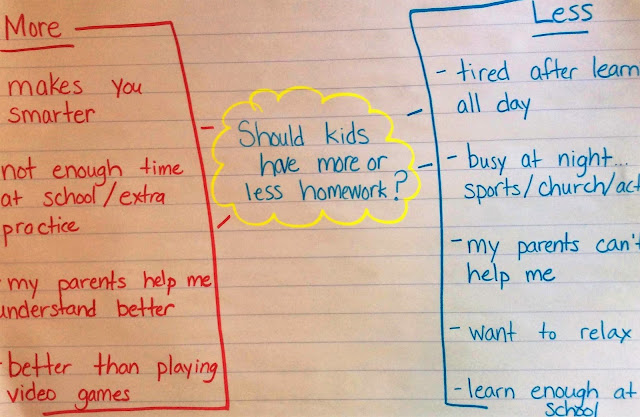 More
makes you
smarter
not enough time
at school/extra
practice
my parents help me
understand better
better than playing
video games
Should kids
have more or
less homework?
Less
- tired after learn
all day
- busy at night....
sports/church/act
- my parents can't
help me
- want to relax
- learn enough at
school